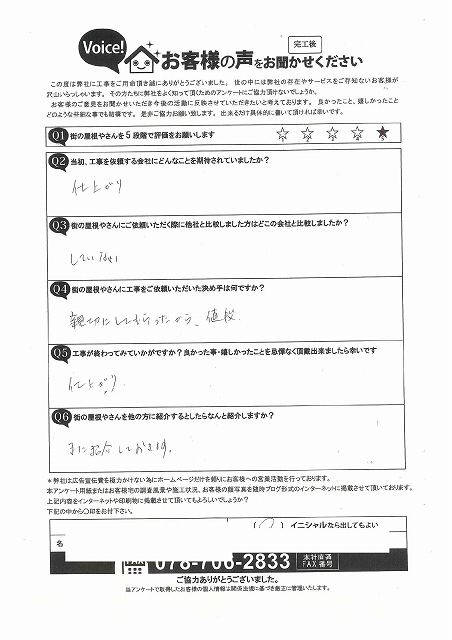 Voice!
お客様の声をお聞かせください
完工後
この度は弊社に工事をご用命頂き誠にありがとうございました。 世の中には弊社の存在やサービスをご存知ないお客様が
沢山いらっしゃいます。 その方たちに弊社をよく知って頂くためのアンケートにご協力頂けないでしょうか。
お客様のご意見をお聞かせいただき今後の活動に反映させていただきたいと考えております。 良かったこと、嬉しかったこと
どのような些細な事でも結構です。 是非ご協力お願い致します。 出来るだけ具体的に書いて頂ければ幸いです。
Q1 街の屋根やさんを5段階で評価をお願いします
1 2 3 4 5
Q2 当初、工事を依頼する会社にどんなことを期待されていましたか?
仕上がり
Q3 街の屋根やさんにご依頼いただく際に他社と比較しました方はどこの会社と比較しましたか?
していない
Q4 街の屋根やさんに工事をご依頼いただいた決め手は何ですか?
親切にしてもらったから、値段
Q5 工事が終わってみていかがですか?良かった事・嬉しかったことを忌憚なく頂戴出来ましたら幸いです
仕上がり
Q6 街の屋根やさんを他の方に紹介するとしたらなんと紹介しますか?
すに紹介しております。
*弊社は広告宣伝費を極力かけない為にホームページだけを頼りにお客様への営業活動を行っております。
本アンケート用紙またはお客様宅の調査風景や施工状況、お客様の顔写真を随時ブログ形式のインターネットに掲載させて頂いております。
上記内容をインターネットや印刷物に掲載させて頂いてもよろしいでしょうか?
下記の中から〇印をお付下さい。
イニシャルなら出してもよい
名
FAX 078-706-2833 本社直通 FAX番号
ご協力ありがとうございました。
当アンケートで取得したお客様の個人情報は関係法規に基づき厳正に管理いたします。